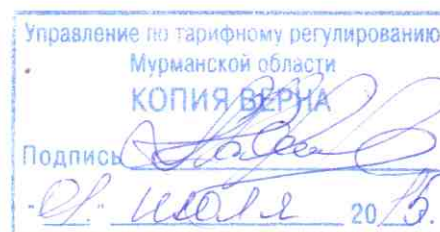 Управление по тарифному регулированию
Мурманской области
КОПИЯ ВЕРНА
Подпись
"01." июля 2015.